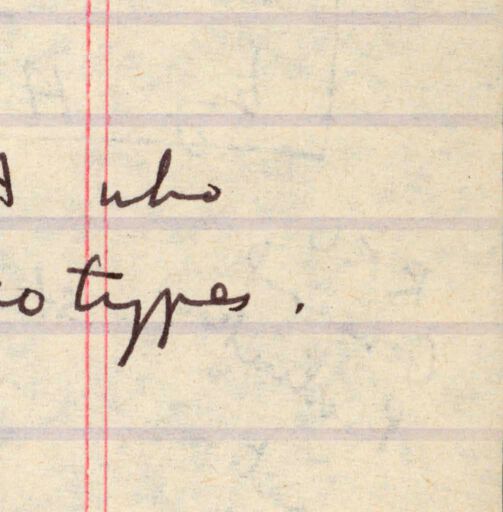 who
otypes.